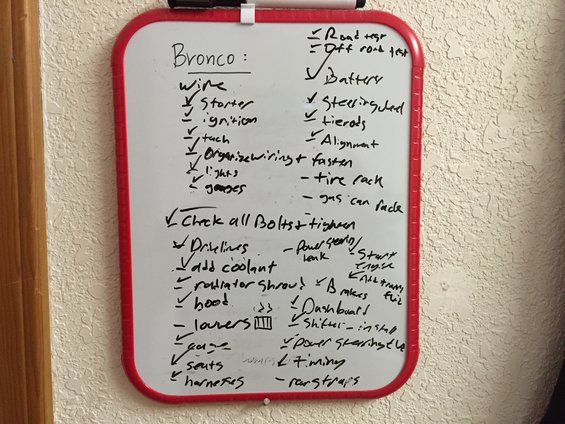 Bronco:
wire
✓ Starter
✓ ignition
✓ tach
✓ Organize wiring + fasten
✓ lights
✓ gauges
✓ Road test
✓ Off road test
✓ Battery
✓ Steering wheel
✓ tierods
✓ Alignment
- tire rack
- gas can rack
✓ Check all Bolts + tighten
✓ Drivelines
✓ add coolant
✓ radiator shroud
✓ hood
- louvers
✓ seats
✓ harnesses
- Power steering
leak
✓ Start
engine
✓ Add trans
✓ Brakes
✓ Dashboard
✓ Shifter - install
✓ Power steering
✓ timing
- rear straps